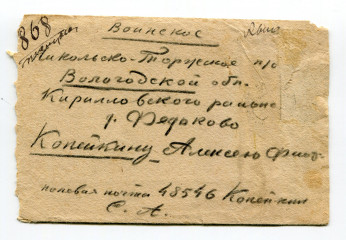 868
Воинское
Никольско-Торжское п/о
Вологодской обл.
Кирилловского района
д. Федаково
Копейкину Алексею Фил
полевая почта 48546 Копейкин
С. А.